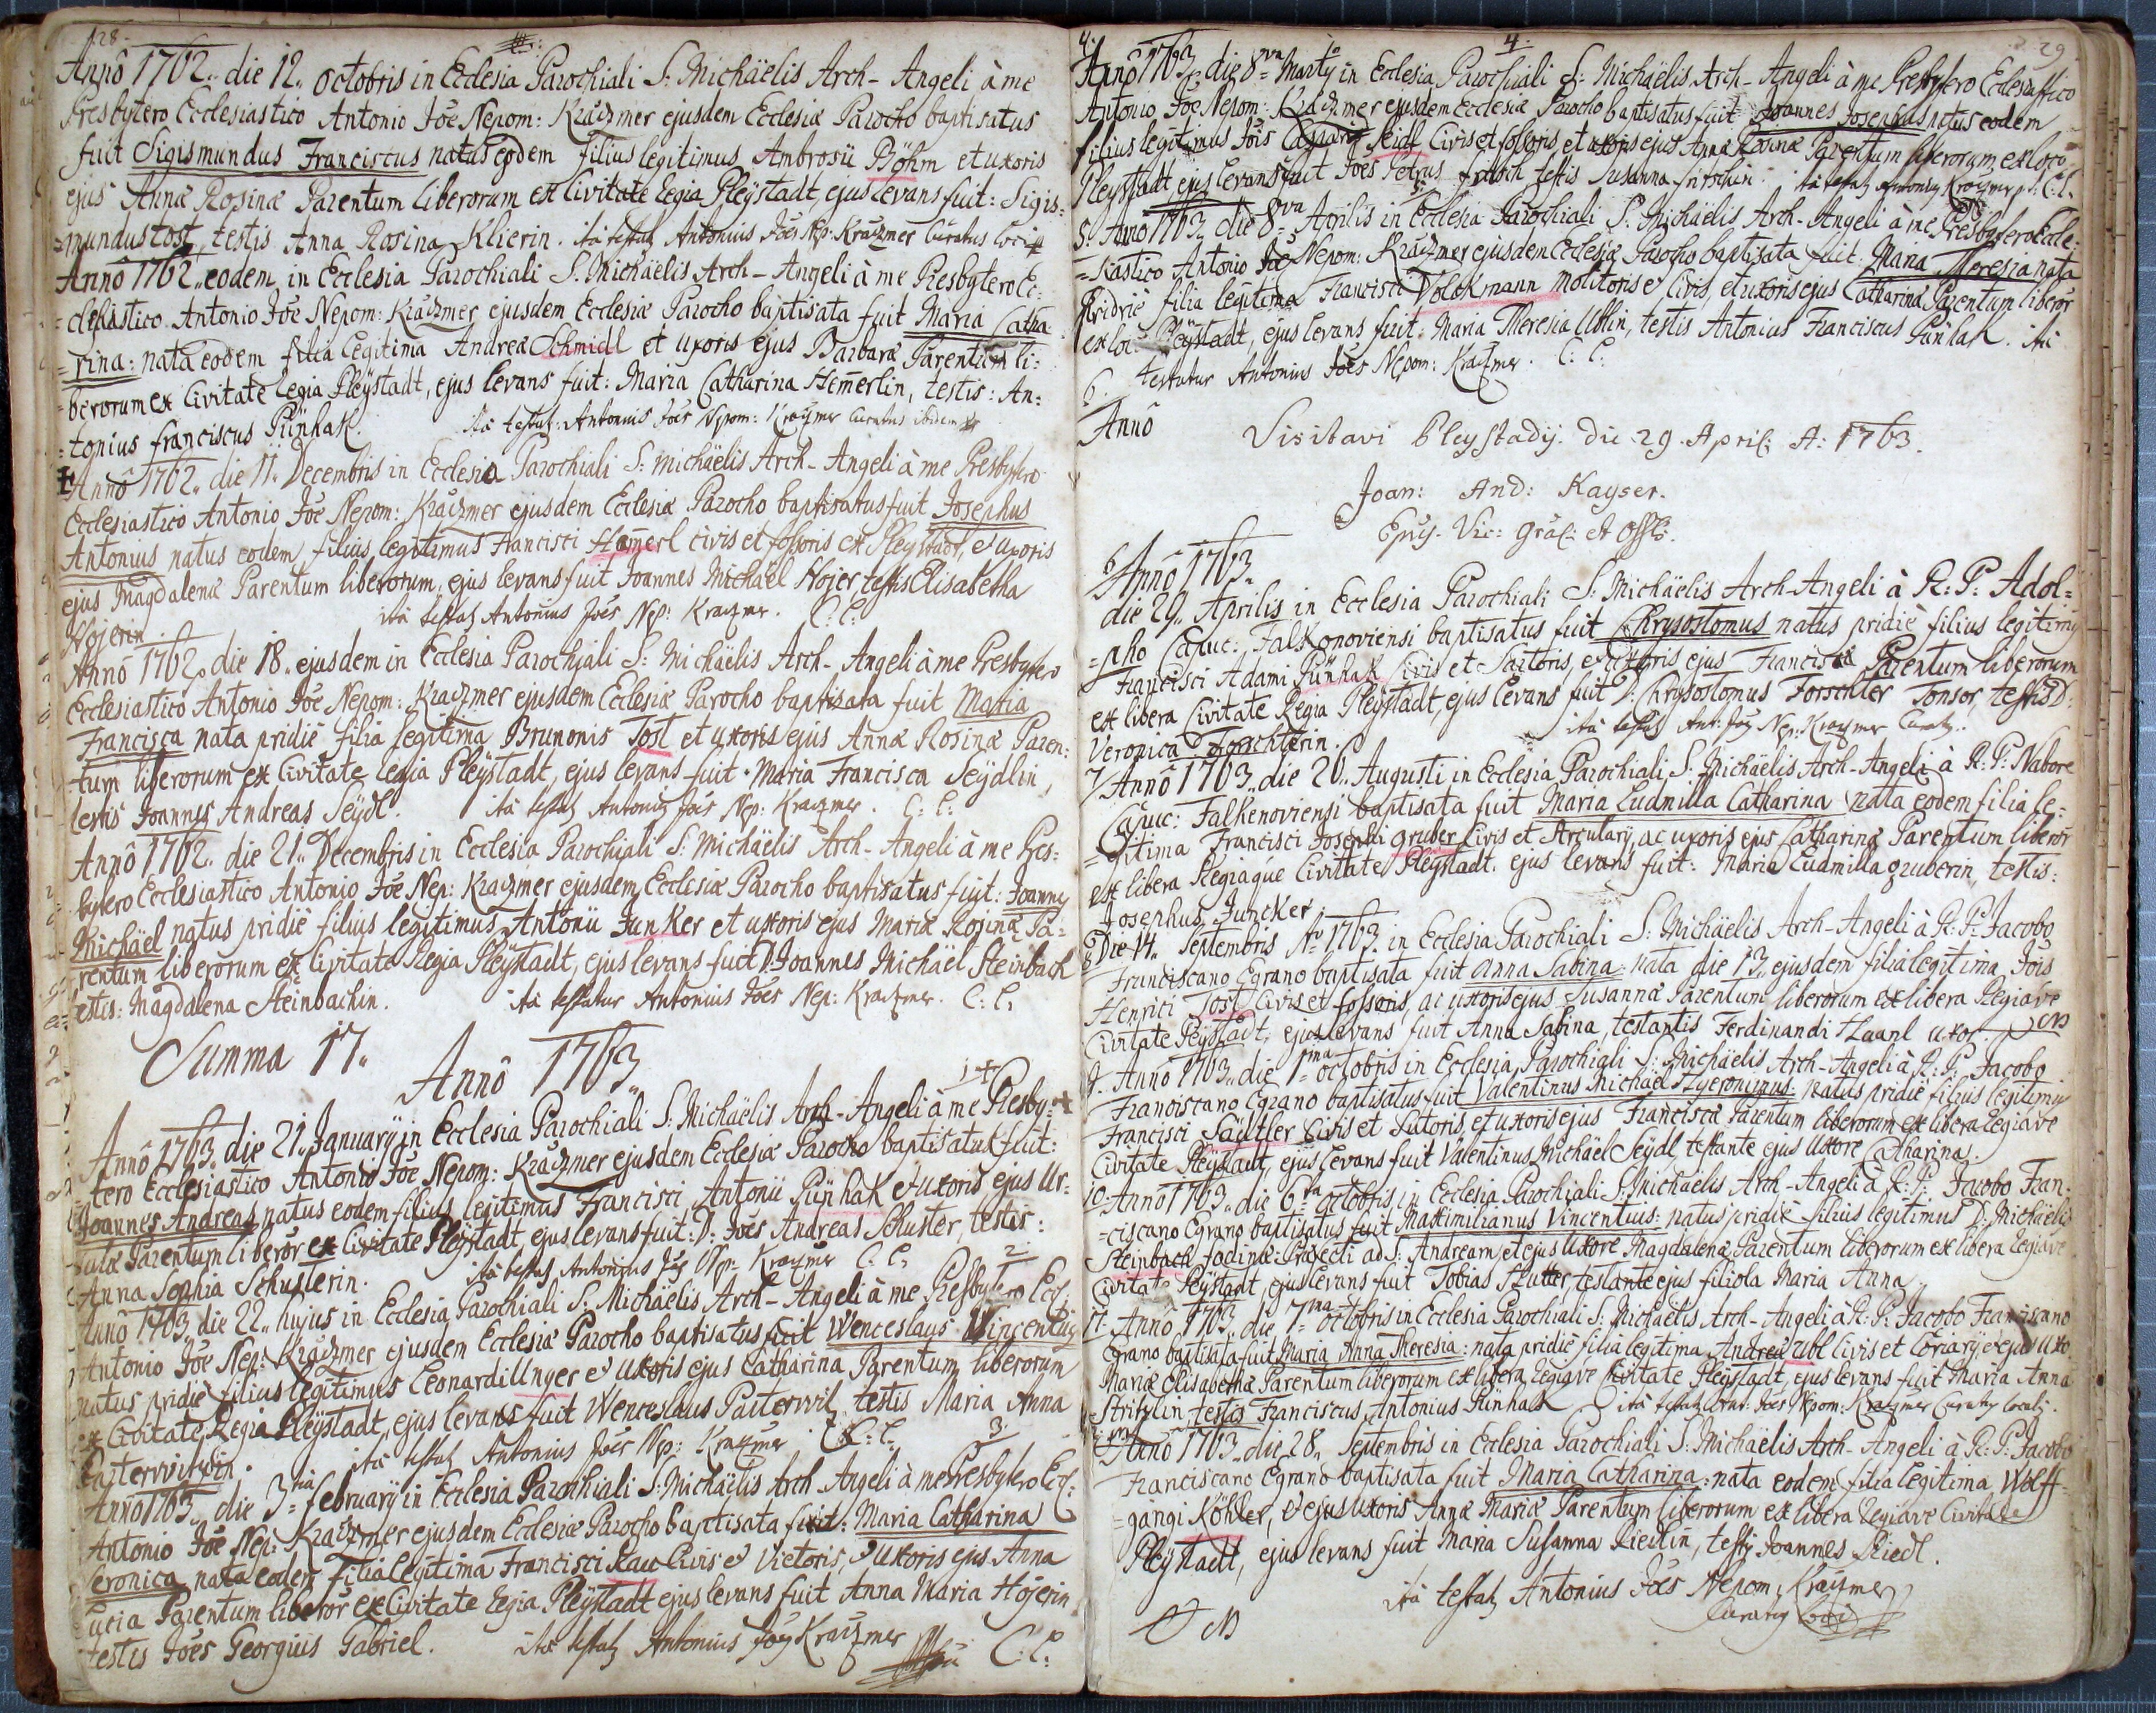 128.
Annô 1762.. die 12.. octobris in Ecclesia Parochiali S: Michäelis Arch-Angeli à me
Presbytero Ecclesiastico Antonio Joẽ Nepom: Kraczmer ejusdem Ecclesiæ Parocho baptisatus
fuit Sigismundus Franciscus natus eodem filius legitimus Ambrosii Böhm et uxoris
ejus Annæ Rosinæ Parentum liberorum ex Civitate Regia Pleÿstadt, ejus levans fuit: Sigis=
=mundus tost, testis Anna Rosina Klierin. ità testat Antonius Joẽs Nep: Kraczmer Curatus loci
Annô 1762.. eodem in Ecclesia Parochiali S. Michäelis Arch-Angeli à me Presbytero Ec=
=clesiastico Antonio Joẽ Nepom: Kraczmer ejusdem Ecclesiæ Parocho baptisata fuit Maria Catha=
=rina: nata eodem filia legitima Andreæ Schmidl et uxoris ejus Barbaræ Parentum li=
=berorum ex Civitate Regia Pleÿstadt, ejus levans fuit: Maria Catharina Hem̃erlin, testis: An=
=tonius franciscus Pünhak. ità testat: Antonius Joẽs Nepom: Kraczmer Curatus ibidem
Annô 1762.. die 11.. Decembris in Ecclesia Parochiali S: Michäelis Arch-Angeli à me Presbytero
Ecclesiastico Antonio Joẽ Nepom: Kraczmer ejusdem Ecclesiæ Parocho baptisatus fuit Josephus
Antonius natus eodem, filius legitimus Francisci Ham̃erl civis et fossoris ex Pleystadt, et uxoris
ejus Magdalenæ Parentum liberorum, ejus levans fuit Joannes Michäel Hojer, testis Elisabetha
Hojerin. ità testat Antonius Joẽs Nep: Kraczmer. C: C:
Annô 1762.. die 18.. ejusdem in Ecclesia Parochiali S: Michäelis Arch-Angeli à me Presbytero
Ecclesiastico Antonio Joẽ Nepom: Kraczmer ejusdem Ecclesiæ Parocho baptisata fuit Maria
Francisca nata pridiè filia legitima Brunonis Tost et uxoris ejus Annæ Rosinæ Paren=
=tum liberorum ex Civitate Regia Pleÿstadt, ejus levans fuit Maria Francisca Seÿdlin,
testis Joannes Andreas Seÿdl. ità testat Antonius Joẽs Nep: Kraczmer. C: C:
Annô 1762.. die 21.. Decembris in Ecclesia Parochiali S: Michäelis Arch-Angeli à me Pres=
bytero Ecclesiastico Antonio Joẽ Nep: Kraczmer ejusdem Ecclesiæ Parocho baptisatus fuit: Joannes
Michäel natus pridiè filius legitimus Antonii Junker et uxoris ejus Mariæ Rosinæ Pa=
rentum liberorum ex Civitate Regia Pleÿstadt, ejus levans fuit D. Joannes Michäel Steinbach
testis: Magdalena Steinbachin. ità testatur Antonius Joẽs Nep: Kraczmer. C: C:
Summa 17..
Annô 1763..
1
Annô 1763.. die 21. Januarÿ in Ecclesia Parochiali S: Michäelis Arch-Angeli à me Presby=
=tero Ecclesiastico Antonio Joẽ Nepom: Kraczmer ejusdem Ecclesiæ Parocho baptisatus fuit:
Joannes Andreas natus eodem filius legitimus Francisci Antonii Pünhak et uxoris ejus Ur=
=sulæ Parentum liberor̃ ex Civitate Pleÿstadt, ejus levans fuit: D: Joẽs Andreas Schuster, testis:
Anna Sophia Schusterin. ità testat Antonius Joẽs Nep: Kraczmer C: C:
2
Annô 1763.. die 22.. hujus in Ecclesia Parochiali S: Michäelis Arch-Angeli à me Presbytero Eccl:
Antonio Joẽ Nep: Kraczmer ejusdem Ecclesiæ Parocho baptisatus fuit Wenceslaus Vincentius
natus pridiè filius legitimus Leonardi Unger et uxoris ejus Catharinæ Parentum liberorum
ex Civitate Regia Pleÿstadt, ejus levans fuit Wenceslaus Pasterwil, testis Maria Anna
Pasterwilin. ità testat Antonius Joẽs Nep: Kraczmer C: C:
3
Anno 1763.. die 3tia february in Ecclesia Parochiali S: Michäelis Arch Angeli à me Presbytero Eccl:
Antonio Joẽ Nep: Kraczmer ejusdem Ecclesiæ Parocho baptisata fuit: Maria Catharina
Veronica nata eodem filia legitima Francisci Rau Civis et Victoris, et uxoris ejus Anna
Lucia Parentum liberor̃ ex Civitate Regia Pleÿstadt ejus levans fuit Anna Maria Hojerin
testis Joẽs Georgius Gabriel. ità testat Antonius Joẽs Kraczmer C: C:
4. 4. 29
Annô 1763.. die 8va Martÿ in Ecclesia Parochiali S: Michäelis Arch-Angeli à me Presbytero Ecclesiastico
Antonio Joẽ Nepom: Kraczmer ejusdem Ecclesiæ Parocho baptisatus fuit Joannes Josephus natus eodem
filius legitimus Joẽs Seidl Civis et fossoris et uxoris ejus Annæ Rosinæ Parentum liberorum, ex loco
Pleystadt, ejus levans fuit Joẽs Petrus fritsch, testis Susanna fritschin. ità testat Antonius Kraczmer C: C.
5. Anno 1763.. die 8va Aprilis in Ecclesia Parochiali S. Michäelis Arch-Angeli à me Presbytero Eccle=
=siastico Antonio Joẽ Nepom: Kraczmer ejusdem Ecclesiæ Parocho baptisata fuit: Maria Theresia nata
Pridriè filia legitima Francisci Volckmann Molitoris et Civis, et uxoris ejus Catharinæ Parentum liberor̃
ex loc: Pleÿstadt, ejus levans fuit: Maria Theresia Ublin, testis Antonius Franciscus Pünhak. ità
testatur Antonius Joẽs Nepom: Kraczmer. C: C:
6.
Annô
Visitavi Pleystadÿ. die 29. April: A: 1763.
Joan: And: Kayser.
Eppis. Vic: gral: et Offlis.
6 Annô 1763..
die 29.. Aprilis in Ecclesia Parochiali S: Michäelis Arch-Angeli à R: P: Adol=
=pho Capuc: Falkonoviensi baptisatus fuit Chrysostomus natus pridiè filius legitimus
Francisci Adami Pünhak Civis et Sartoris, et uxoris ejus Franciscæ Parentum liberorum
ex libera Civitate Regia Pleÿstadt, ejus levans fuit D: Chrysostomus Forschter Tonsor, testis D:
Veronica Forschterin. ità testat Ant: Joẽs Nep: Kraczmer Curatus.
7 Annô 1763.. die 26.. Augusti in Ecclesia Parochiali S: Michäelis Arch-Angeli à R: P: Nabore
Capuc: Falkenoviensi baptisata fuit Maria Ludmilla Catharina nata eodem filia le=
=gitima Francisci Josephi gruber Civis et Arcularÿ, ac uxoris ejus Catharinæ Parentum liberor̃
ex libera Regiaque Civitate Pleÿstadt. ejus levans fuit: Maria Ludmilla gruberin, testis:
Josephus Juncker.
8 Die 14.. Septembris Aõ 1763. in Ecclesia Parochiali S: Michäelis Arch-Angeli à R: P: Jacobo
Franciscano Egrano baptisata fuit Anna Sabina: nata die 13.. ejusdem filia legitima Joẽs
Henrici Tost Civis et fossoris, ac uxoris ejus Susannæ Parentum liberorum ex libera Regiave
Civitate Pleÿstadt, ejus levans fuit Anna Sabina, testantis Ferdinandi Haanl uxor. NB
9. Annô 1763.. die 1ma octobris in Ecclesia Parochiali S: Michäelis Arch-Angeli à R: P: Jacobo
Franciscano Egrano baptisatus fuit Valentinus Michäel Hyeronimus: natus pridiè filius legitimus
Francisci Säuttler Civis et Sutoris, et uxoris ejus Franciscæ Parentum liberorum ex libera Regiave
Civitate Pleÿstadt, ejus levans fuit Valentinus Michäel Seÿdl testante ejus Uxore Catharina.
10. Annô 1763.. die 6ta octobris in Ecclesia Parochiali S. Michäelis Arch-Angeli à R: P: Jacobo Fran=
=ciscano Egrano baptisatus fuit Maximilianus Vincentius: natus pridiè filius legitimus D: Michäelis
Steinbach fodinæ Præfecti ad S: Andream, et ejus Uxore Magdalenæ Parentum liberorum ex libera Regiave
Civitate Pleÿstadt, ejus levans fuit Tobias Hutter, testante ejus filiola Maria Anna
11. Annô 1763.. die 7ma octobris in Ecclesia Parochiali S: Michäelis Arch-Angeli à R: P: Jacobo Franciscano
Egrano baptisata fuit Maria Anna Theresia: nata pridiè filia legitima Andreæ Ubl Civis et Coriarÿ et ejus uxo:
Mariæ Elisabethæ Parentum liberorum ex libera Regiave Civitate Pleÿstadt, ejus levans fuit Maria Anna
Stritzlin, testis Franciscus Antonius Pünhak ità testat Ant: Joẽs Nepom: Kraczmer Curatus localis.
Annô 1763.. die 28.. Septembris in Ecclesia Parochiali S: Michäelis Arch-Angeli à R: P: Jacobo
Franciscano Egrano baptisata fuit Maria Catharina: nata eodem filia legitima Wolff=
=gangi Köhler, et ejus uxoris Annæ Mariæ Parentum liberorum ex libera Regiave Civitate
Pleÿstadt, ejus levans fuit Maria Susanna Riedlin, testis Joannes Riedl.
ità testat Antonius Joẽs Nepom: Kraczmer
Curatus loci
NB